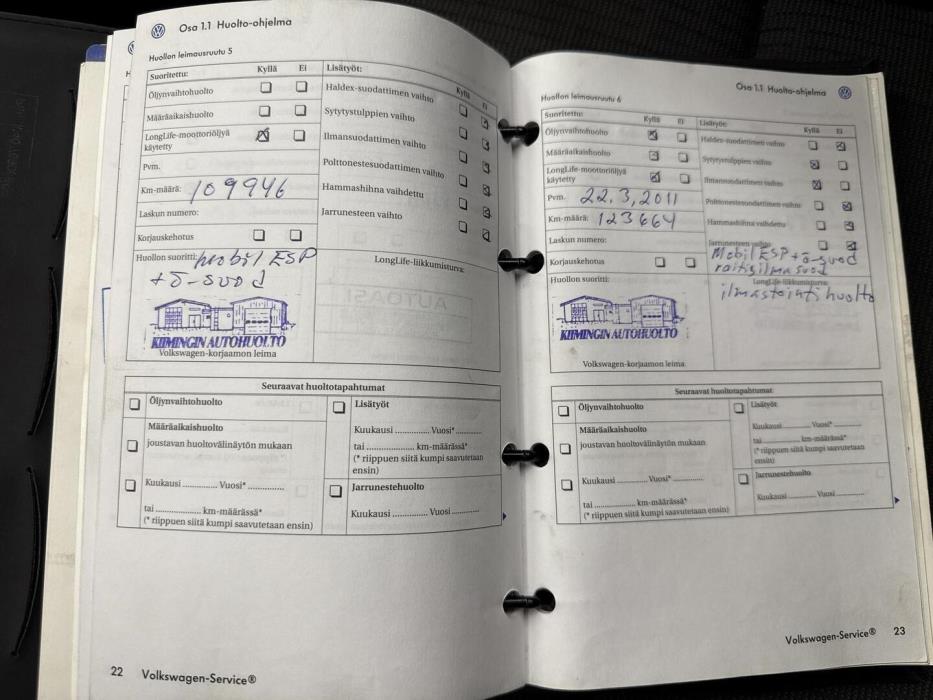 Osa 1.1 Huolto-ohjelma
Huollon leimausruutu 5
Suoritettu: Kyllä Ei
Öljynvaihtohuolto
Määräaikaishuolto
LongLife-moottoriöljyä
käytetty
Pvm.
Km-määrä: 109946
Laskun numero:
Korjauskehotus
Huollon suoritti: mobil ESP
+ ö-suod
KIIMINGIN AUTOHUOLTO
Volkswagen-korjaamon leima
Lisätyöt: Kyllä Ei
Haldex-suodattimen vaihto
Sytytystulppien vaihto
Ilmansuodattimen vaihto
Polttonestesuodattimen vaihto
Hammashihna vaihdettu
Jarrunesteen vaihto
LongLife-liikkumisturva:
Seuraavat huoltotapahtumat
Öljynvaihtohuolto
Määräaikaishuolto
joustavan huoltovälinäytön mukaan
Kuukausi ............ Vuosi* ..............
tai .................. km-määrässä*
(* riippuen siitä kumpi saavutetaan ensin)
Lisätyöt
Kuukausi ............. Vuosi* ..........
tai .................. km-määrässä*
(* riippuen siitä kumpi saavutetaan
ensin)
Jarrunestehuolto
Kuukausi .............. Vuosi ..........
22 Volkswagen-Service®
Osa 1.1 Huolto-ohjelma
Huollon leimausruutu 6
Suoritettu: Kyllä Ei
Öljynvaihtohuolto
Määräaikaishuolto
LongLife-moottoriöljyä
käytetty
Pvm. 22.3.2011
Km-määrä: 123664
Laskun numero:
Korjauskehotus
Huollon suoritti:
KIIMINGIN AUTOHUOLTO
Volkswagen-korjaamon leima
Lisätyöt: Kyllä Ei
Haldex-suodattimen vaihto
Sytytystulppien vaihto
Ilmansuodattimen vaihto
Polttonestesuodattimen vaihto
Hammashihna vaihdettu
Jarrunesteen vaihto
Mobil ESP + ö-suod
raitisilmasuod
LongLife-liikkumisturva:
ilmastointihuolto
Seuraavat huoltotapahtumat
Öljynvaihtohuolto
Määräaikaishuolto
joustavan huoltovälinäytön mukaan
Kuukausi ............ Vuosi* ............
tai .................. km-määrässä*
(* riippuen siitä kumpi saavutetaan ensin)
Lisätyöt
Kuukausi ............. Vuosi* ..........
tai .................. km-määrässä*
(* riippuen siitä kumpi saavutetaan
ensin)
Jarrunestehuolto
Kuukausi ............. Vuosi ..........
Volkswagen-Service® 23